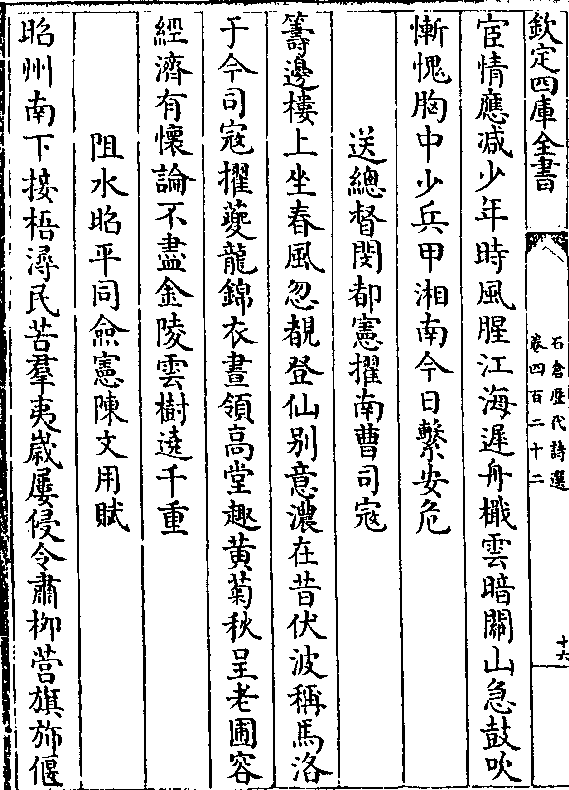 欽定四庫全書
石倉歷代詩選
卷四百二十二
十六
宦情應减少年時風腥江海遲舟檝雲暗關山急鼓吹
慚愧胸中少兵甲湘南今日繫安危
送總督閔都憲擢南曹司寇
籌邊樓上坐春風忽覩登仙别意濃在昔伏波稱馬洛
于今司寇擢夔龍錦衣晝領高堂趣黄菊秋呈老圃容
經濟有懷論不盡金陵雲樹遶千重
阻水昭平同僉憲陳文用賦
昭州南下接梧潯民苦羣夷嵗屢侵令肅柳營旗旆偃